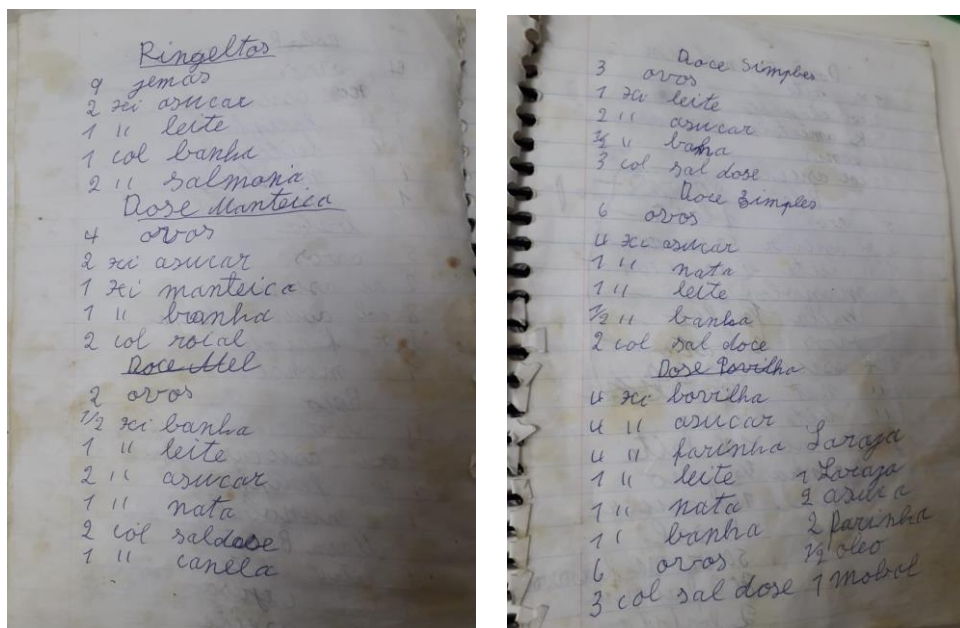 Ringeltos
9 jemas
2 xi asucar
1 " leite
1 col banha
2 " salmonia
Dose Manteica
4 ovos
2 xi asucar
1 xi manteica
1 " banha
2 col roial
Doce Mel
2 ovos
1/2 xi banha
1 " leite
2 " asucar
1 " nata
2 col saldose
1 " canela
Doce Simples
3 ovos
1 xi leite
2 " asucar
1/2 " banha
3 col sal dose
Doce Simples
6 ovos
4 xi asucar
1 " nata
1 " leite
1/2 " banha
2 col sal doce
Dose Povilha
4 xi bovilha
4 " asucar
4 " farinha
1 " leite
1 " nata
1 " banha
6 ovos
3 col sal dose
Laraja
1 Laraja
2 asuca
2 farinha
1/2 oleo
1